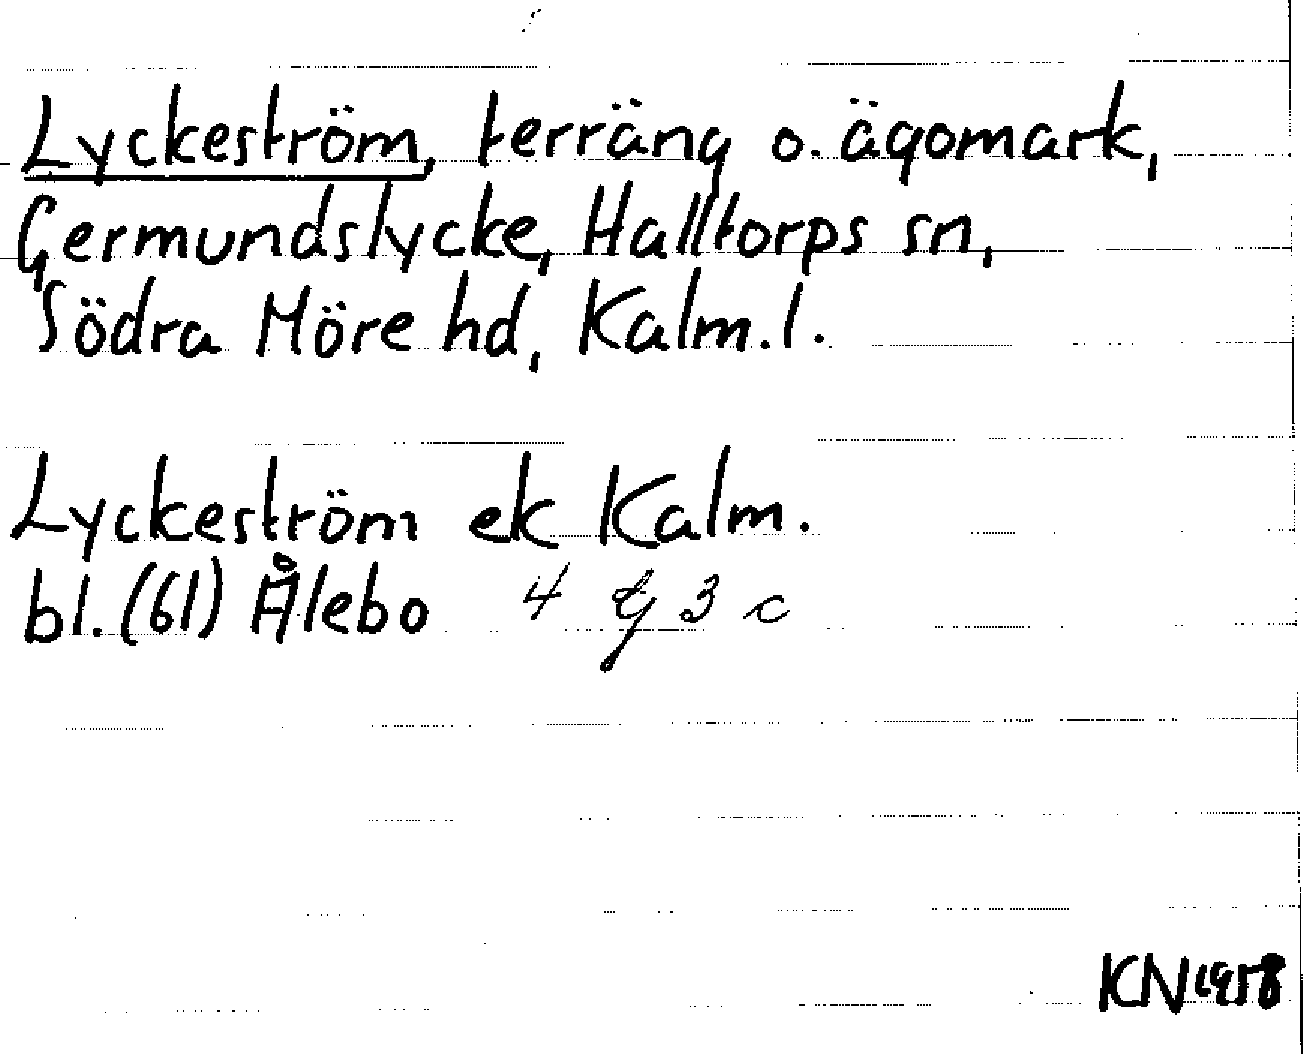 Lyckeström, terräng o. ägomark,
Germundslycke, Halltorps sn,
Södra Möre hd, Kalm. l.
Lyckeström ek Kalm.
bl. (61) Ålebo 4 g 3 c
KN 1958